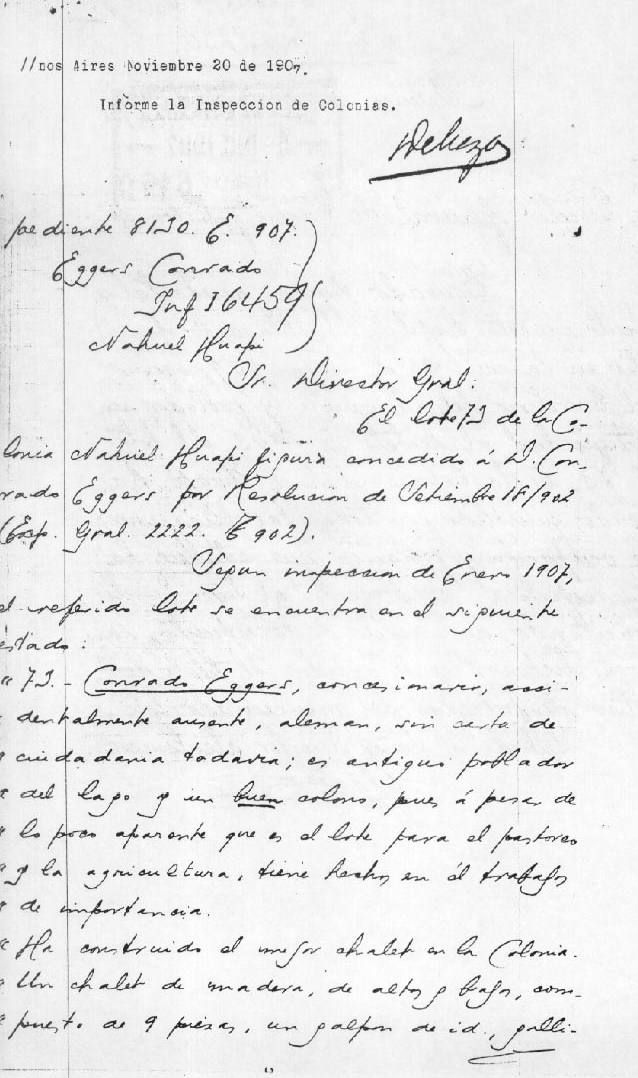 //nos Aires Noviembre 20 de 1907.
Informe la Inspeccion de Colonias.
pediente 8130. E. 907.
Eggers Conrado
Inf 16459
Nahuel Huapi
Sr. Director Gral.
El lote 73 de la Co-
lonia Nahuel Huapi figura concedido á D. Con-
rado Eggers por Resolucion de Setiembre 18/902
(Exp. Gral. 2222. E 902).
Segun inspeccion de Enero 1907,
el referido lote se encuentra en el siguiente
estado:
" 73. - Conrado Eggers, concesionario, acci-
" dentalmente ausente, aleman, sin carta de
" ciudadania todavia; es antiguo poblador
" del lago y un buen colono, pues á pesar de
" lo poco aparente que es el lote para el pastoreo
" y la agricultura, tiene hechos en él trabajos
" de importancia.
" Ha construido el mejor chalet en la Colonia.
" Un chalet de madera, de altos y bajos, com-
" puesto de 9 piezas, un galpon de id., galli-